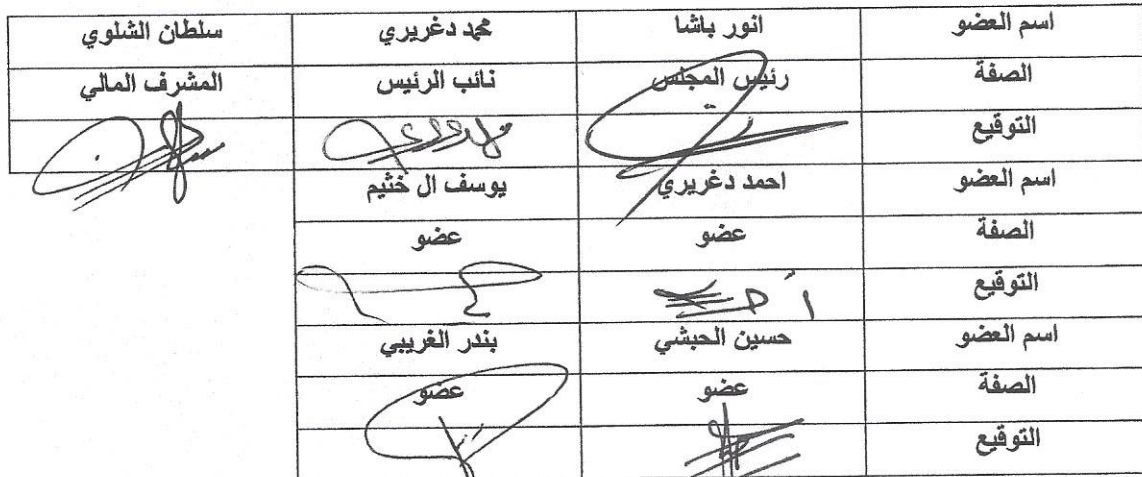 اسم العضو انور باشا محمد دغريري سلطان الشلوي
الصفة رئيس المجلس نائب الرئيس المشرف المالي
التوقيع
اسم العضو احمد دغريري يوسف ال خثيم
الصفة عضو عضو
التوقيع
اسم العضو حسين الحبشي بندر الغريبي
الصفة عضو عضو
التوقيع